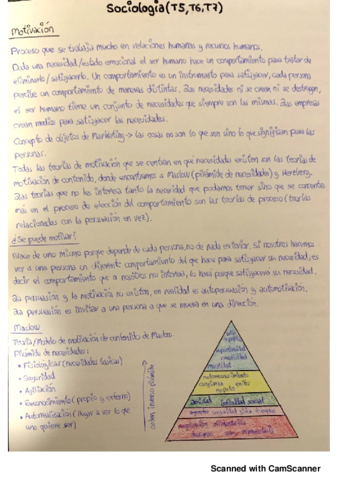 Sociología (T5, T6, T7)
Motivación
Proceso que se trabaja mucho en relaciones humanas y recursos humanos.
Dada una necesidad/estado emocional el ser humano hace un comportamiento para tratar de
eliminarlo/satisfacerlo. Un comportamiento es un instrumento para satisfacer, cada persona
percibe un comportamiento de maneras distintas. Las necesidades ni se crean ni se destruyen,
el ser humano tiene un conjunto de necesidades que siempre son las mismas. Las empresas
crean medios para satisfacer las necesidades.
Concepto de objetos de Marketing → las cosas no son lo que son sino lo que significan para las
personas.
Todas las teorías de motivación que se centran en que necesidades existen son las teorías de
motivación de contenido, donde encontramos a Maslow (pirámide de necesidades) y Herzberg.
Las teorías que no les interesa tanto la necesidad que podamos tener sino que se centran
más en el proceso de elección del comportamiento son las teorías de proceso (teorías
relacionadas con la persuasión en vez).
¿Se puede motivar?
de uno mismo porque depende de cada persona, no de nada exterior. Si nosotros hacemos
ver a una persona un comportamiento del que hace para satisfacer su necesidad, es
decir el comportamiento que a nosotros nos interesa, lo hará porque satisfacerá su necesidad.
La persuasión y la motivación no existen, en realidad es autopersuasión y automotivación.
La persuasión es invitar a una persona a que se mueva en una dirección.
Maslow
Teoría/Modelo de motivación de contenido de Maslow.
Pirámide de necesidades:
• Fisiológicas (necesidades básicas)
• Seguridad
• Afiliación
• Reconocimiento (propio y externo)
• Autorrealización (llegar a ser lo que
uno quiere ser)
orden inverso pirámide
creatividad
confianza éxito
respeto
amistad intimidad sexual
respiración alimentación
descanso sexo
Scanned with CamScanner